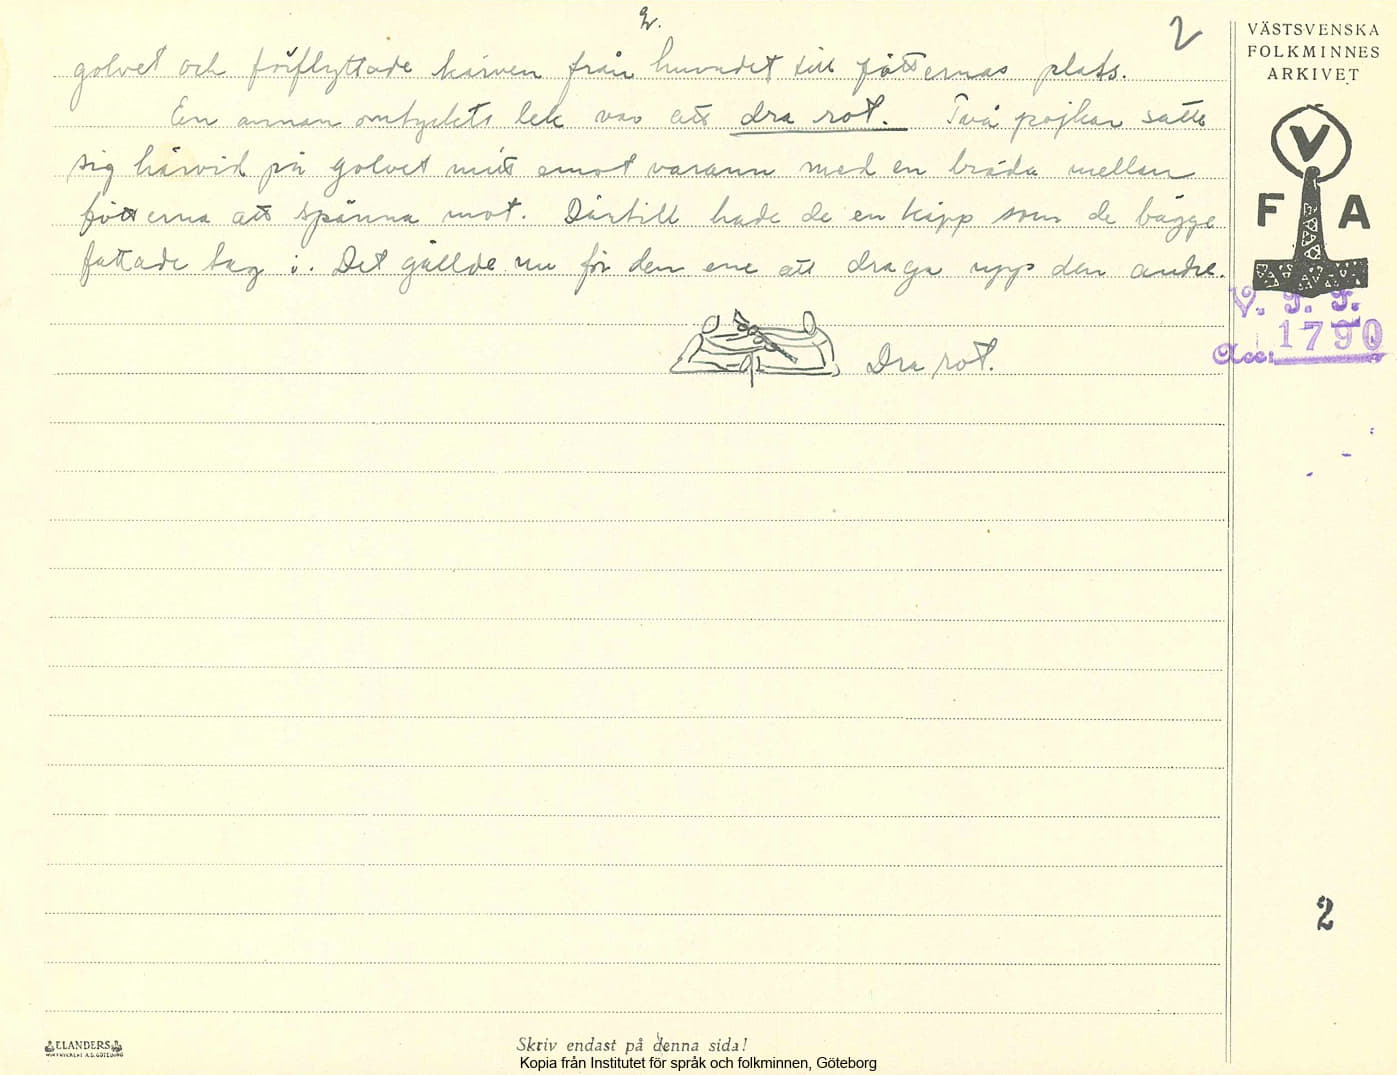 2.
2
golvet och förflyttade kärven från huvudet till fötternas plats.
En annan omtyckts lek var att dra rot. Två pojkar satte
sig härvid på golvet mitt emot varann med en bräda mellan
fötterna att spänna mot. Därtill hade de en käpp som de bägge
fattade tag i. Det gällde nu för den ene att draga upp den andre.
Dra rot.
VÄSTSVENSKA
FOLKMINNES
ARKIVET
V
F A
V. F. F.
Acc: 1790
2
ELANDERS
Skriv endast på denna sida!
Kopia från Institutet för språk och folkminnen, Göteborg